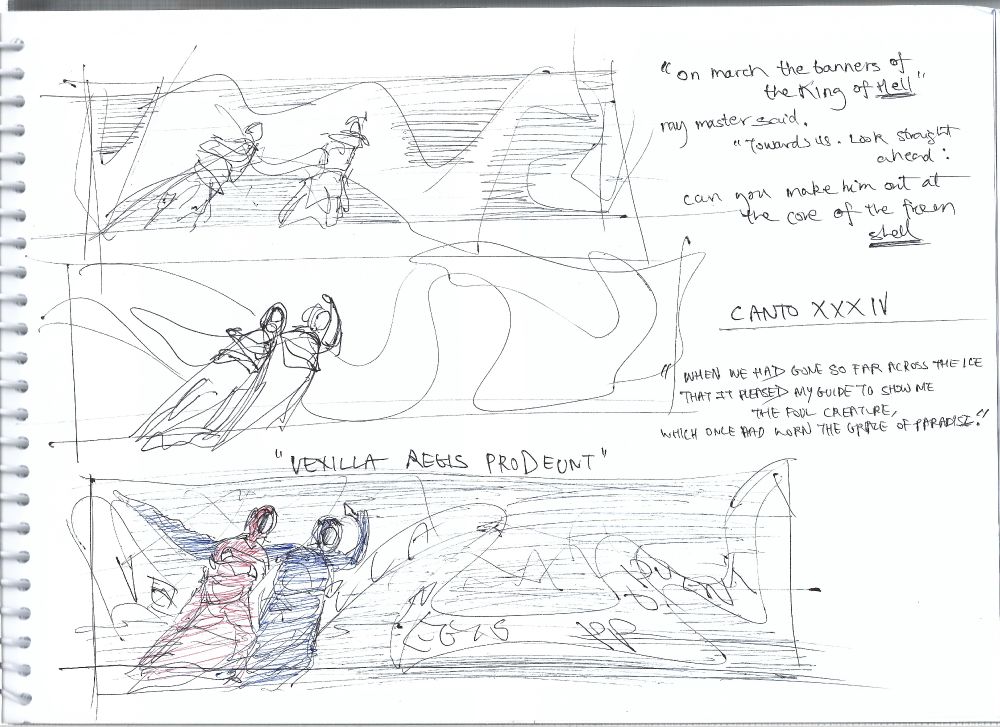 "on march the banners of
the King of Hell"
my master said.
"Towards us. Look straight
ahead:
can you make him out at
the core of the frozen
shell
CANTO XXXIV
"WHEN WE HAD GONE SO FAR ACROSS THE ICE
THAT IT PLEASED MY GUIDE TO SHOW ME
THE FOUL CREATURE,
WHICH ONCE HAD WORN THE GRACE OF PARADISE."
"VEXILLA REGIS PRODEUNT"